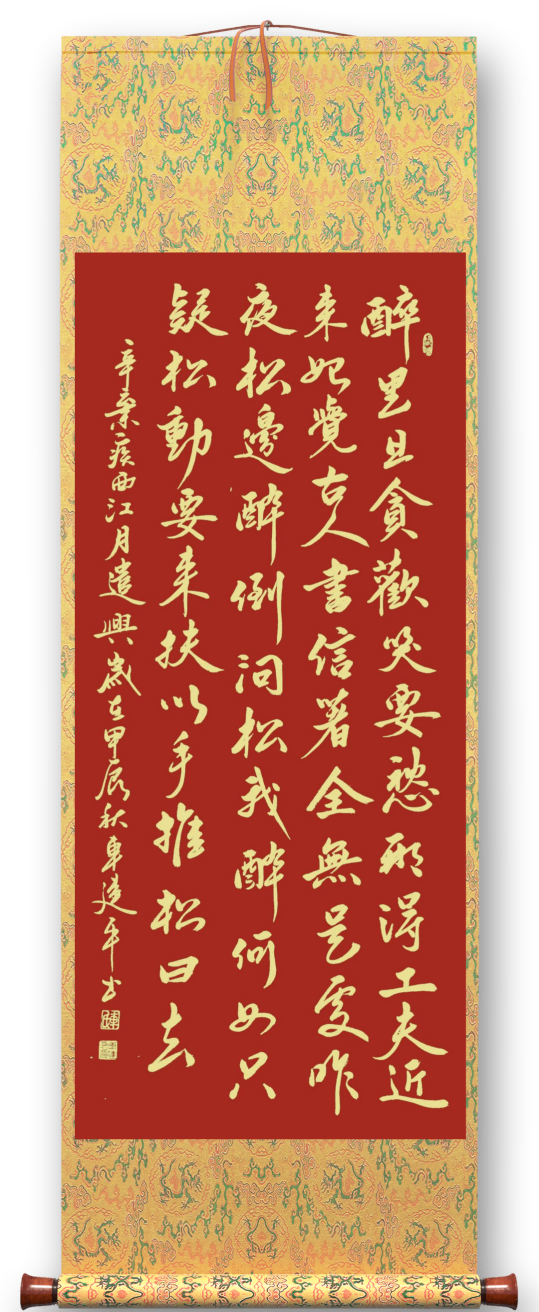 醉里且貪歡笑要愁那得工夫近
来始覺古人書信著全無是處昨
夜松邊醉倒问松我醉何如只
疑松動要来扶以手推松曰去
辛棄疾西江月遣興歲在甲辰秋車建平书